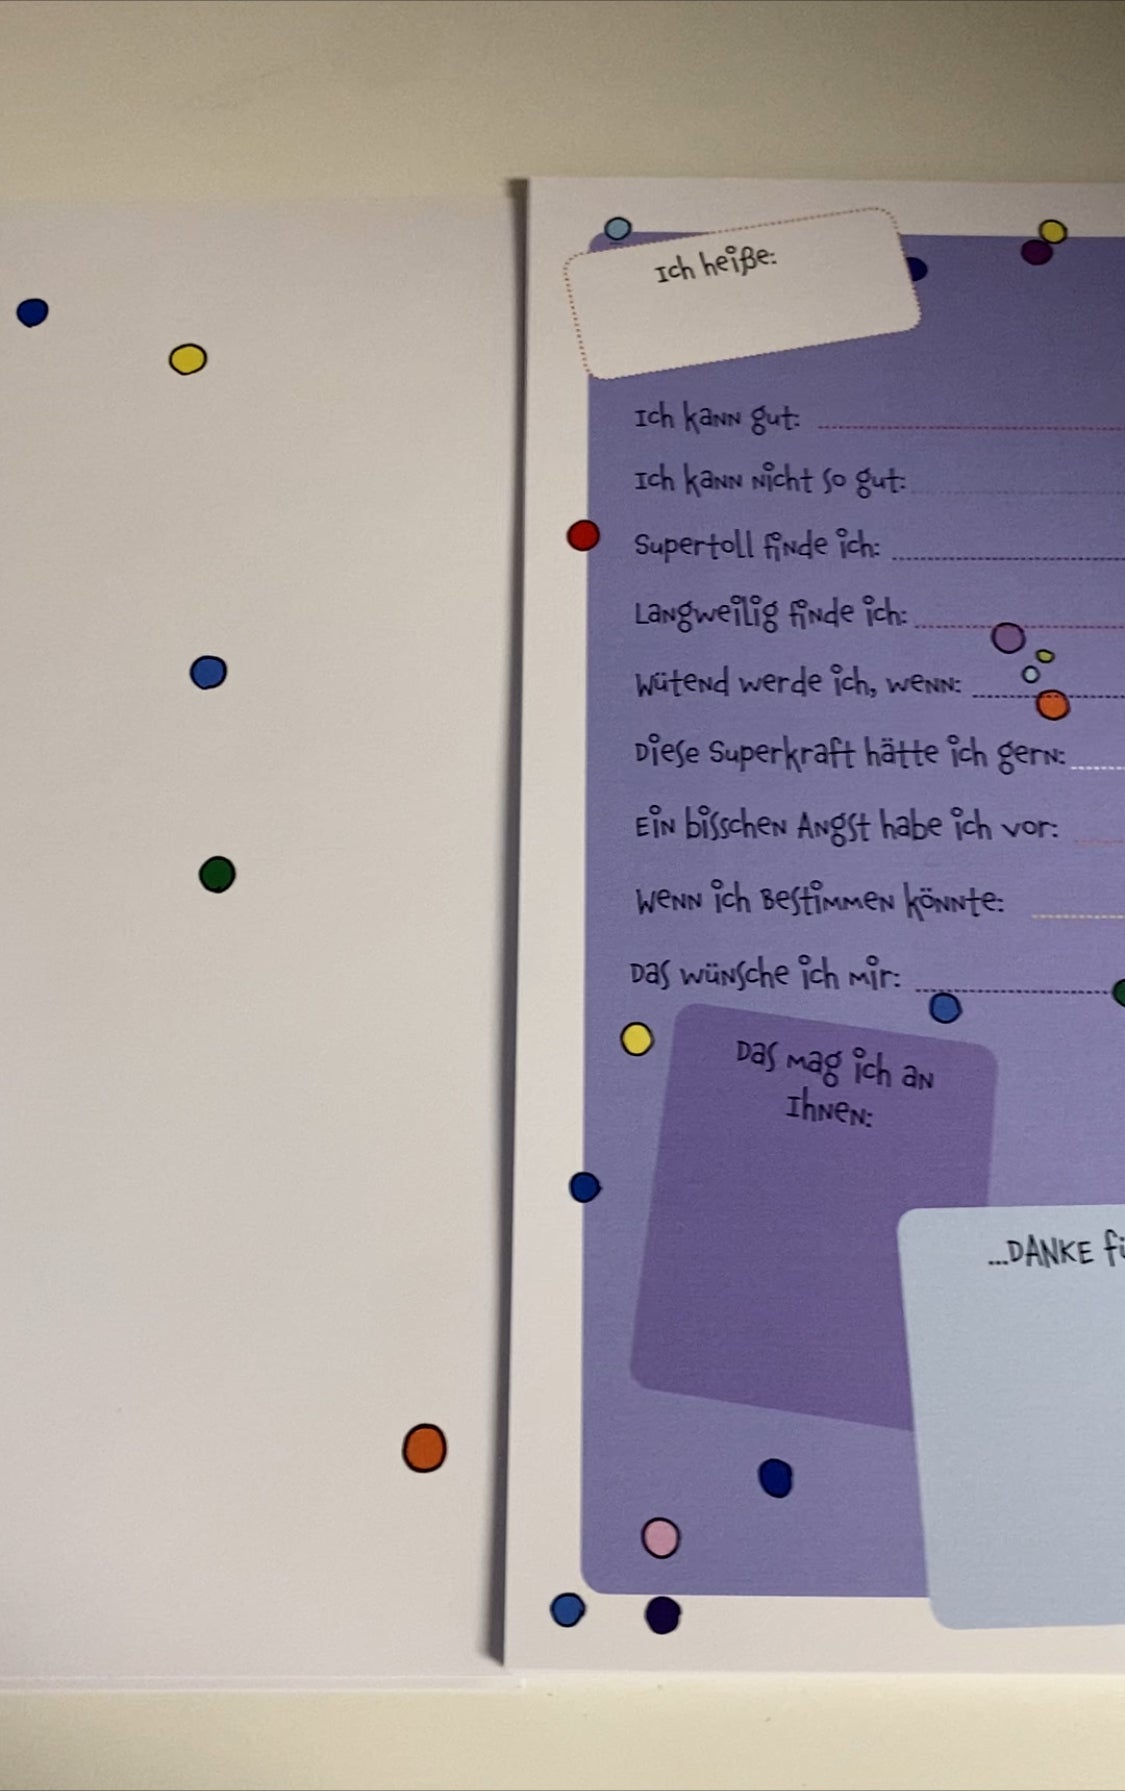 Ich heiße:
Ich kann gut:
Ich kann nicht so gut:
Supertoll finde ich:
Langweilig finde ich:
Wütend werde ich, wenn:
Diese Superkraft hätte ich gern:
Ein bisschen Angst habe ich vor:
Wenn ich bestimmen könnte:
Das wünsche ich mir:
Das mag ich an
Ihnen:
...DANKE